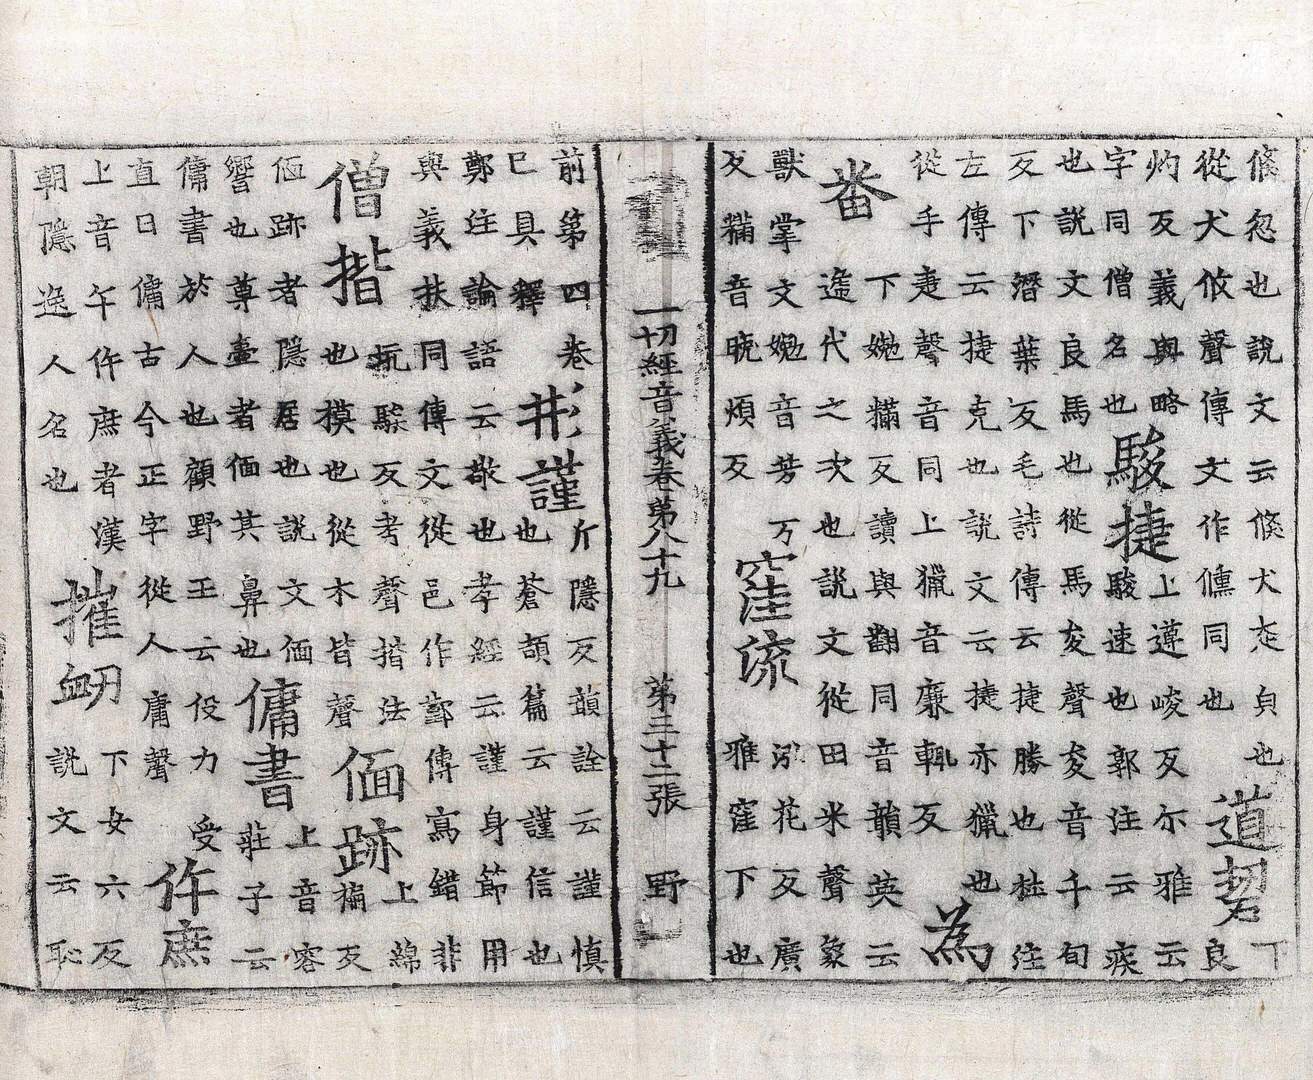 倏忽也說文云倏犬态貞也
從犬攸聲傳文作儵同也
道䂮
下
良
灼反義與略
字同僧名也
駿捷
上遵峻反尒雅云
駿速也郭注云疾
也說文良馬也從馬夋聲夋音千旬
反下潛葉反毛詩傳云捷勝也杜注
左傳云捷克也說文云捷亦獵也
從手疌聲音同上獵音廉輒反
為
番
下嬎䊩反讀與翻同音韻英云
遙代之次也說文從田米聲象
獸掌文嬎音芳万
反䊩音晚煩反
窪流
泓花反廣
雅窪下也
一切經音義卷第八十九 第三十二張 野
前第四卷
已具釋
并謹
斤隱反韻詮云謹慎
也蒼頡篇云謹信也
鄭注論語云敬也孝經云謹身節用
與義扶同傳文從邑作鄞傳寫錯非
僧揩
坑駭反考聲揩法
也模也從木皆聲
偭跡
上綿
褊反
偭跡者隱居也說文偭
響也尊壷者偭其鼻也
傭書
上音容
莊子云
傭書於人也顧野王云役力受
直曰傭古今正字從人庸聲
仵庶
上音午仵庶者漢
朝隱逸人名也
摧衂
下女六反
說文云恥